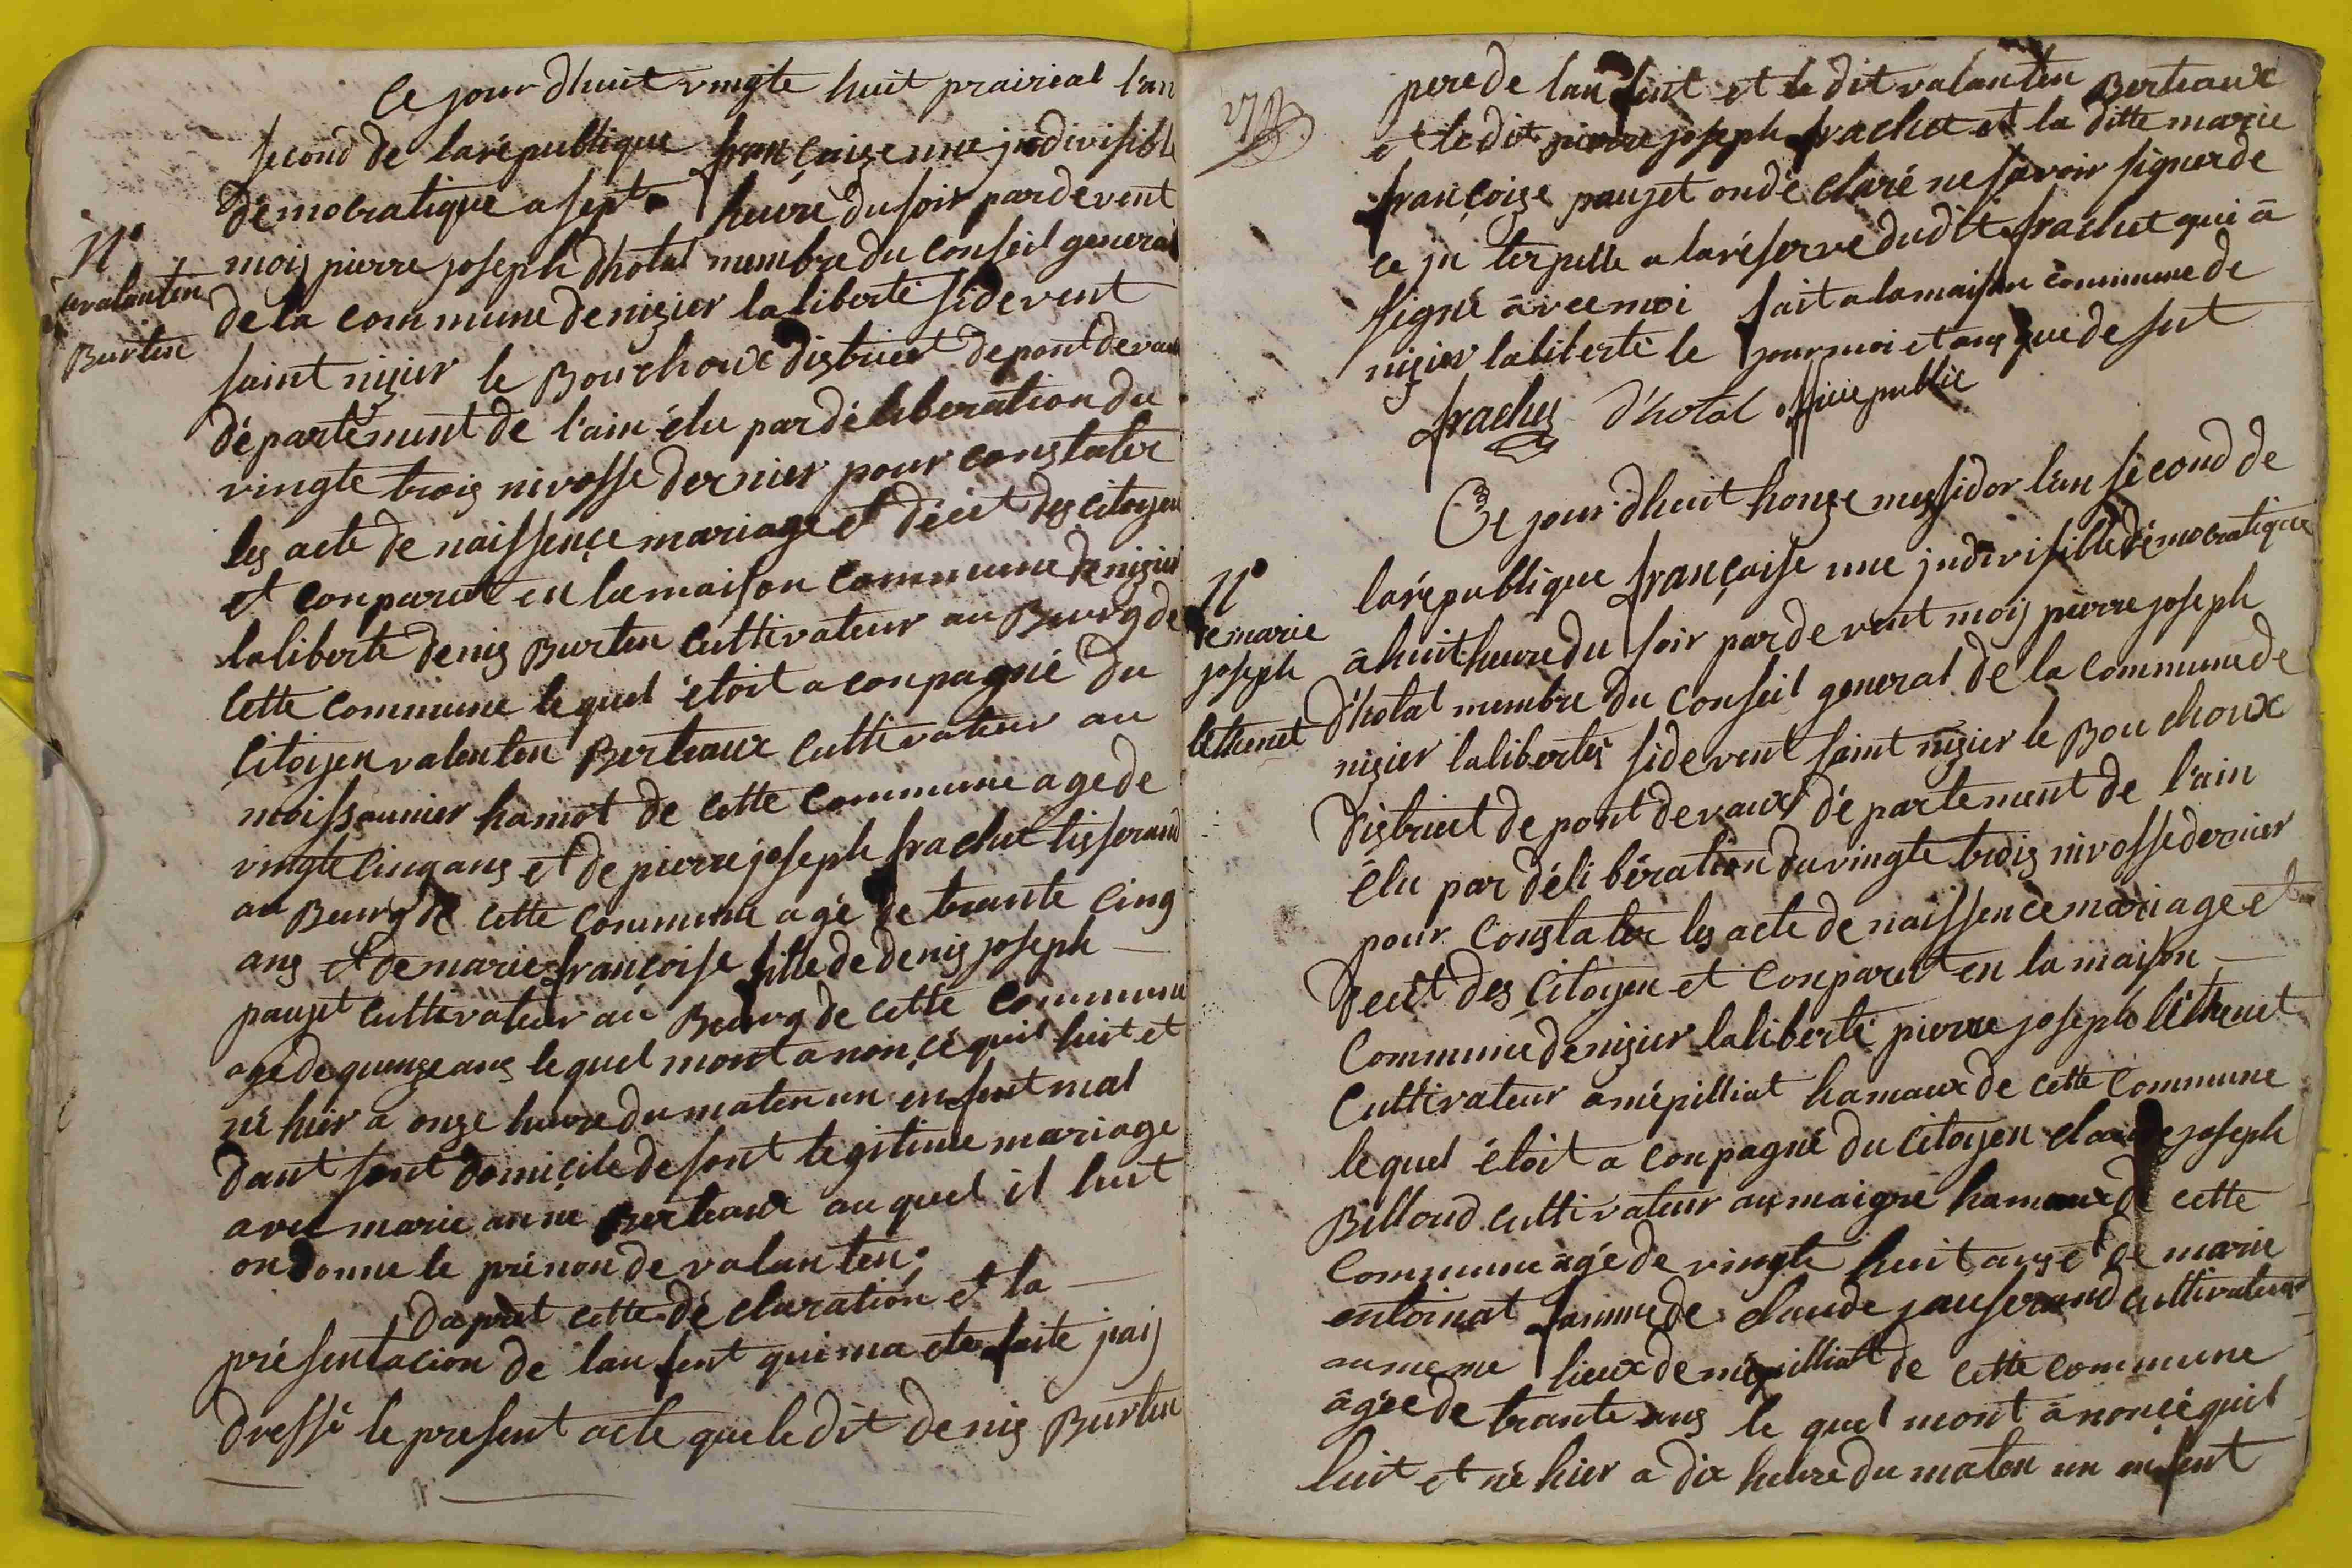 Ce jour dhuit vingte huit prairial l'an
second de larépublique françaize une jndivisible
démocratique a sept heure du soir pardevent
moij pierre joseph dhotal membre du conseil general
de la commune de nizier laliberté sidevent
saint nizier le Bouchoux district de pont devaux
département de l'ain élu par déliberation du
vingte trois nivosse dernier pour constater
les acte de naissençe mariage et décêt des citoyen
et conparut en la maison commune de nizier
laliberté denis Burtin cultivateur au Bourg de
cette commune le quel étoit aconpagné du
citoijen valenten Berteaux cultivateur au
moissonnier hamot de cette commune age de
vingte cinq ans et de pierre joseph frachet tisserand
au Bourg de cette commune agé de trante cinq
ans et de marie françoise fille de denis joseph
paujet cultivateur au Bourg de cette commune
agé de quenze ans le quel mont anonçé quil luit et
né hier a onze heure du maten un enfent mal
dant sont domiçile de sont legitime mariage
avec marie anne Berteaux au quel il luit
on donne le prénon de valanten.
Daprêt cette déclaration et la
présentacion de lanfent qui ma eté faite jaij
dressé le present acte que le dit denis Burtin
N°
valanten
Burtin
pere de lanfent et le dit valanten Berteaux
et le dit pierre joseph frachet et la ditte marie
françoize paujet ondé claré ne savoir signer de
ce jn terpelle a la réserve dudit frachet qui à
signé avec moi fait a la maison commune de
nizier laliberté le jour moi et ans que desut
frachet d'hotal officie public
Ce jour dhuit honze messidor l'an second de
larépublique françaisse une jndivisible démocratique
à huit heure du soir par devent moij pierre joseph
d'hotal membre du conseil general de la commune de
nizier laliberté sidevent saint nizier le Bouchoux
district de pont devaux département de l'ain
élu par délibération du vingte trois nivosse dernier
pour constater les acte de naissence mariage et
deçêt des citoyen et conparut en la maison
commune de nizier laliberté pierre joseph léthenet
cultivateur amépilliat hamaux de cette commune
le quel étoit a conpagné du citoyen claude joseph
Billoud cultivateur au maigre hamaux de cette
commune âgé de vingte huit ans et de marie
entoinat famme de claude jauserand cultivateur
au meme lieux de mépilliat de cette commune
âgée de trante ans le quel mont ânoncé quil
luit et né hier a dix heure du maten un enfent
N°
de marie
joseph
léthenet